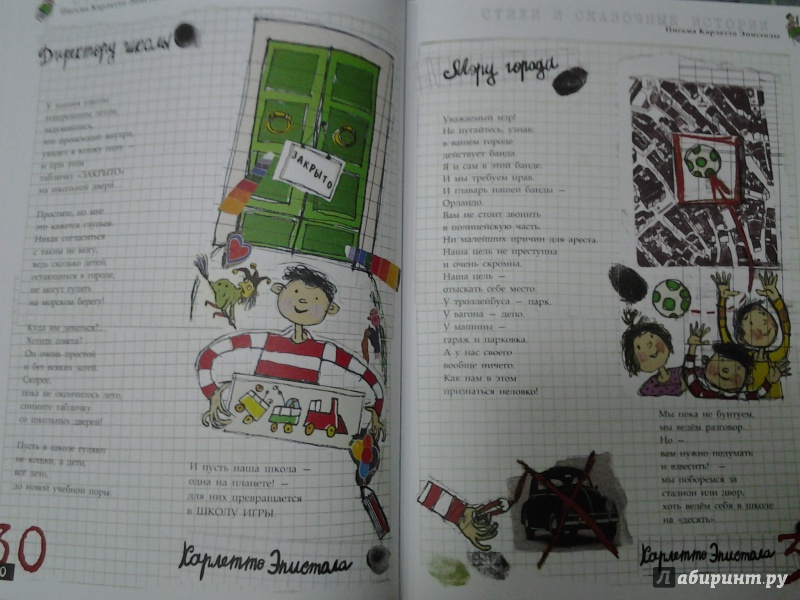 Письма Карлетто Эпистолы
Директору школы
У здания школы
задержишься летом,
задумавшись,
что происходит внутри,
увидев в кошку одну —
и при этом
табличку «ЗАКРЫТО»
на школьной двери.
Простите, но мне
это кажется глупым.
Никак согласиться
с таким не могу,
ведь сколько детей,
остающихся в городе,
не могут гулять
на морском берегу!
Куда им деваться?..
Хотите совета?
Он очень простой
и без всяких затей.
Скорее,
пока не окончилось лето,
снимите табличку
со школьных дверей!
Пусть в школе гуляют
не кошки, а дети,
всё лето,
до новой учебной поры.
ЗАКРЫТО
И пусть наша школа —
одна на планете! —
для них превращается
в ШКОЛУ ИГРЫ.
Карлетто Эпистола
30
СТИХИ И СКАЗОЧНЫЕ ИСТОРИИ
Письма Карлетто Эпистолы
Мэру города
Уважаемый мэр!
Не пугайтесь, узнав:
в вашем городе
действует банда.
Я и сам в этой банде.
И мы требуем прав.
И главарь нашей банды —
Орландо.
Вам не стоит звонить
в полицейскую часть.
Ни малейших причин для ареста.
Наша цель не преступна
и очень скромна.
Наша цель —
отыскать себе место.
У троллейбуса — парк.
У вагона — депо.
У машины —
гараж и парковка.
А у нас своего
вообще ничего.
Как нам в этом
признаться неловко!
Мы пока не бунтуем,
мы ведём разговор.
Но —
вам нужно подумать
и взвесить! —
мы поборемся за
стадион или двор,
хоть ведём себя в школе
на «десять».
Карлетто Эпистола
3
Лабиринт.ру